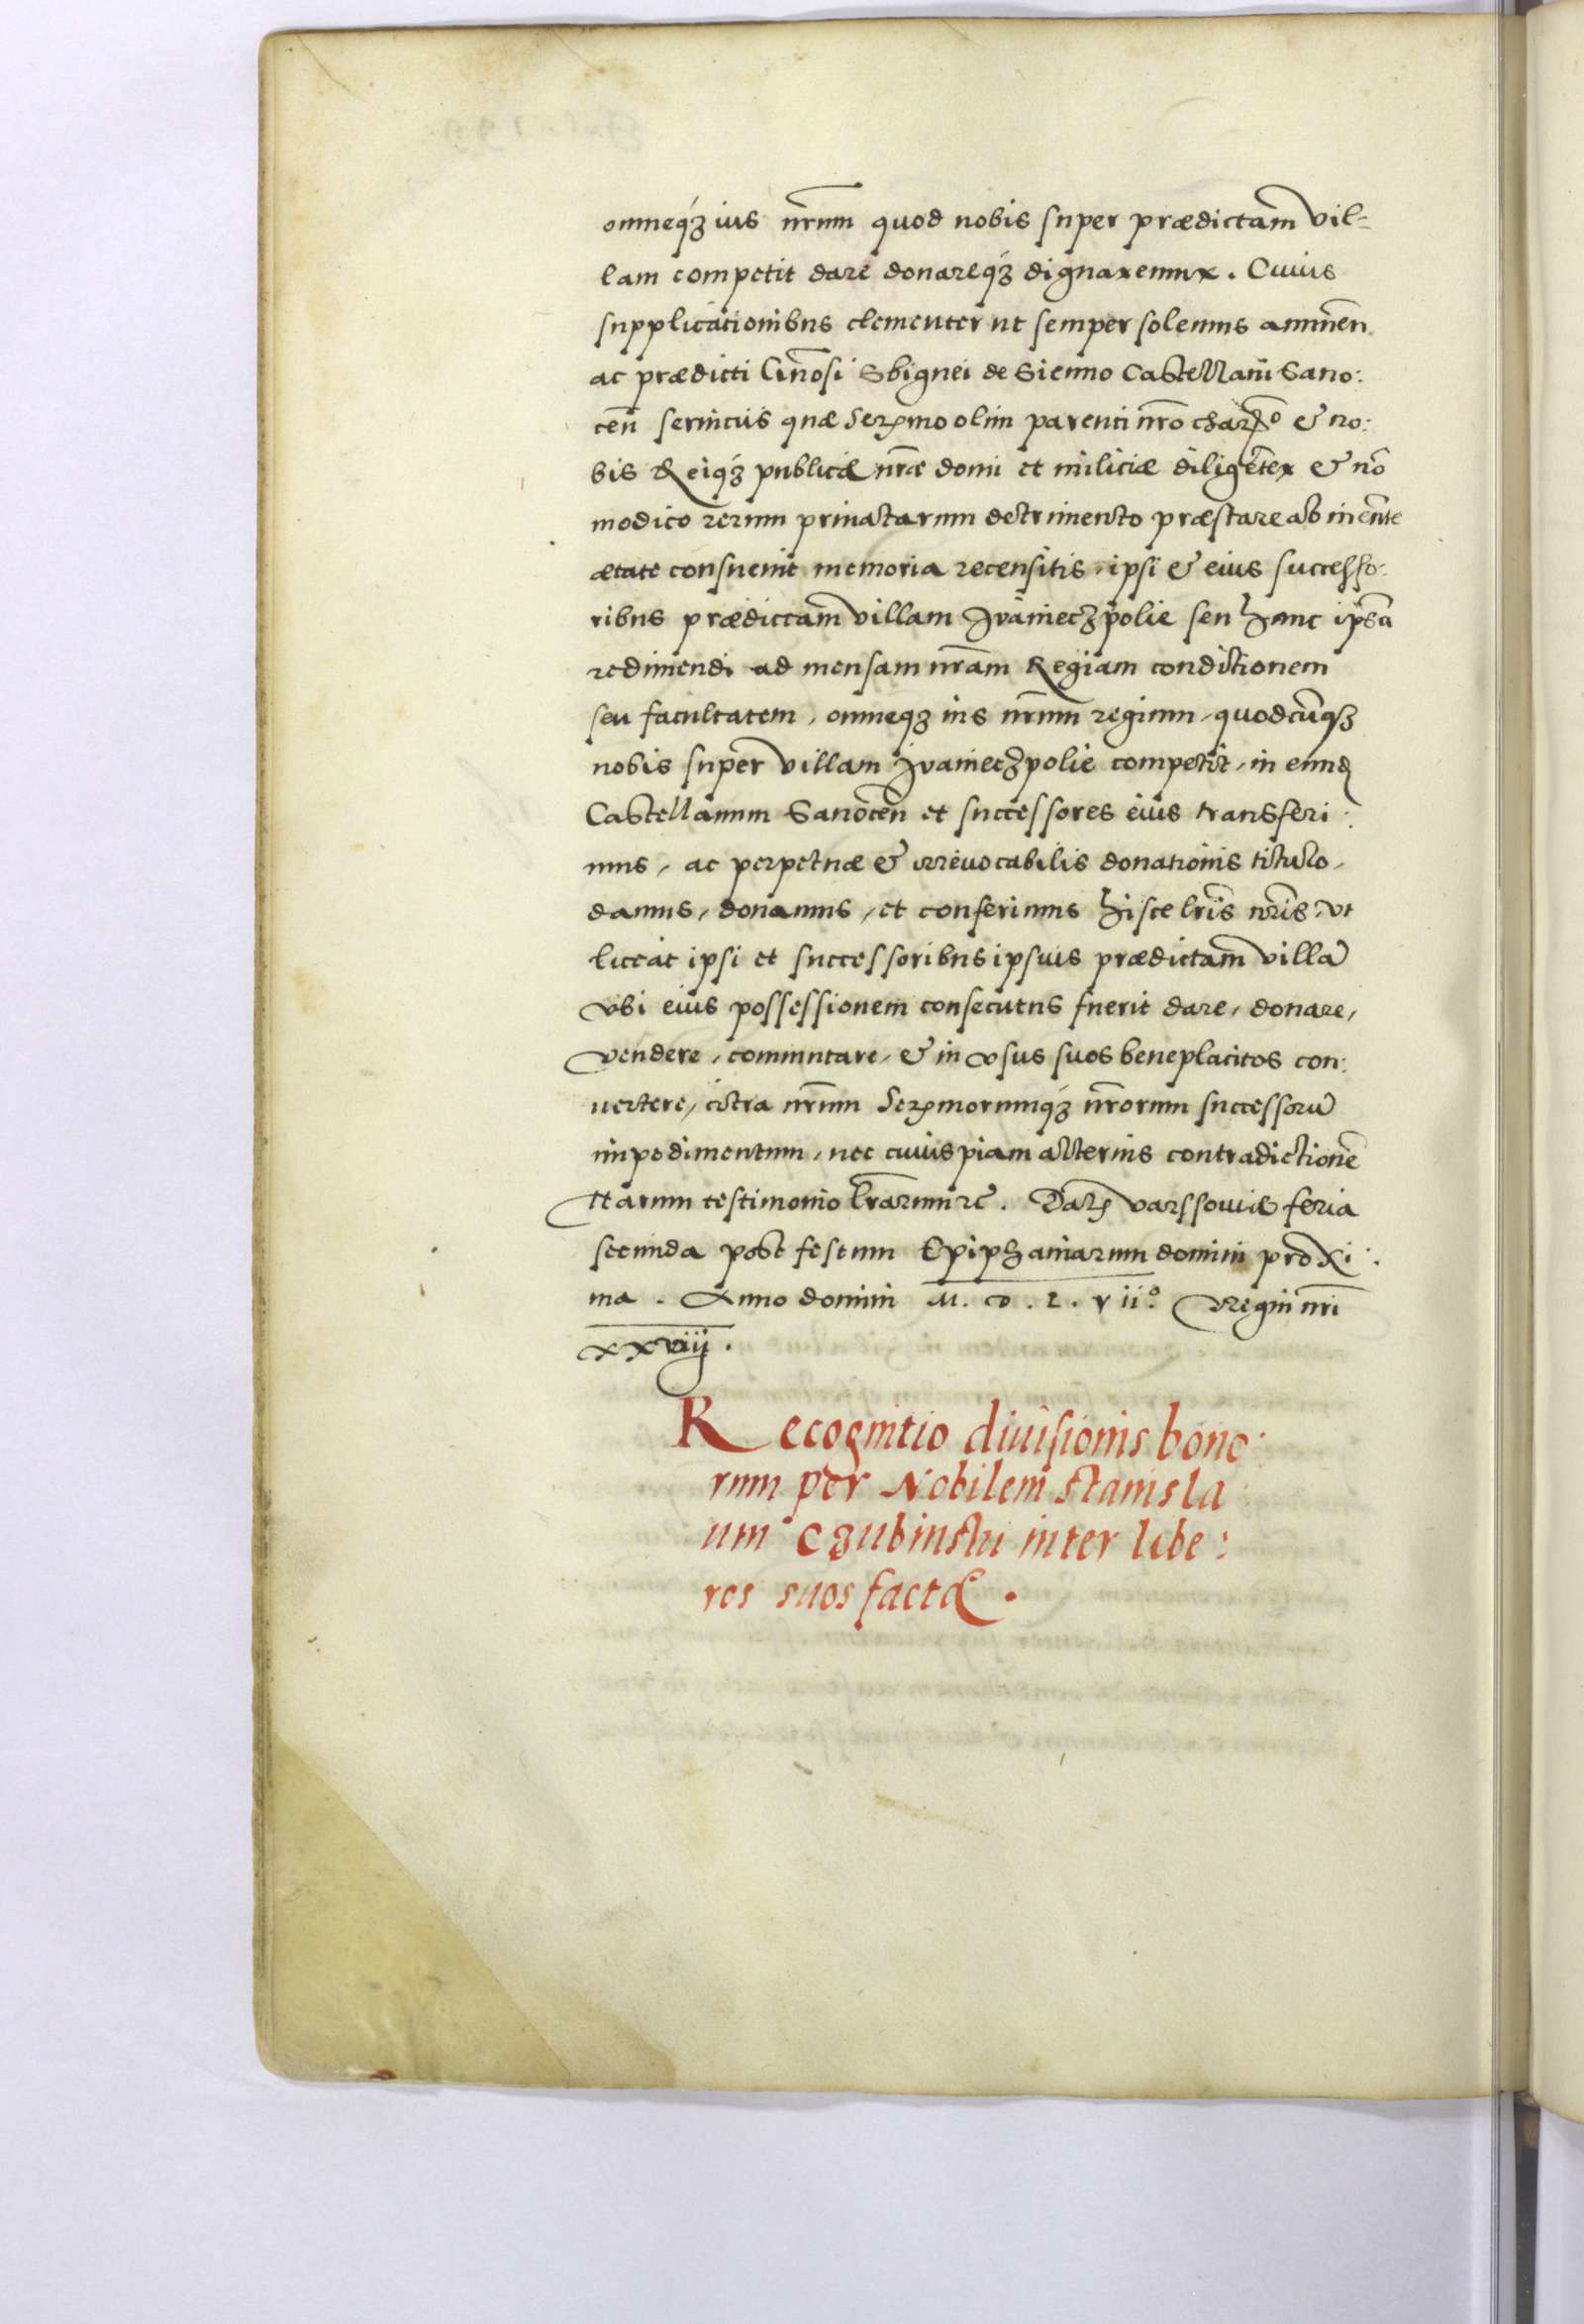 omneq́ꝫ ius nr̃um quod nobis super prædictam vil=
lam competit dare donareq́ꝫ dignaremur. Cuius
supplicationibus clementer ut semper solemus annuen̄
ac prædicti Gn̄osi Sbignei de Sienno Castellani Sano:
cen̄ seruitiis quæ Serᵐmo olim parenti nr̃o charᵐo & no:
bis Reiq́ꝫ publicæ nr̃æ domi et miliciæ diligēter & nō
modico rerum priuatarum detrimento præstare ab ineūte
ætate consueuit memoria recensitis, ipsi & eius successo:
ribus prædictam villam Iwanieczpolie seu hanc ipsā
redimendi ad mensam nr̃am Regiam conditionem
seu facultatem, omneqꝫ ius nr̃um regium, quodcūqꝫ
nobis super villam Iwanieczpolie competit, in eund
Castellanum Sanocen̄ et successores eius transferi:
mus, ac perpetuæ & irreuocabilis donationis titulo,
damus, donamus, et conferimus hisce lr̃is nr̃is, vt
liceat ipsi et successoribus ipsius prædictam villā
vbi eius possessionem consecutus fuerit dare, donare,
vendere, commutare, & in vsus suos beneplacitos con:
uertere, citra nr̃um Serᵐmorumq́ꝫ nr̃orum successorū
impedimentum, nec cuiuspiam alterius contradictionē
Harum testimonio lr̃arum ꝛc̄. Dat̃ varssouiæ feria
secunda post festum Epiphaniarum domini proxi:
ma. Anno domini M. D. L. vii°. Regni nr̃i
xxviij.
Recognitio diuisionis bono:
rum per Nobilem Stanisla
um Czubinski inter libe:
ros suos factæ.